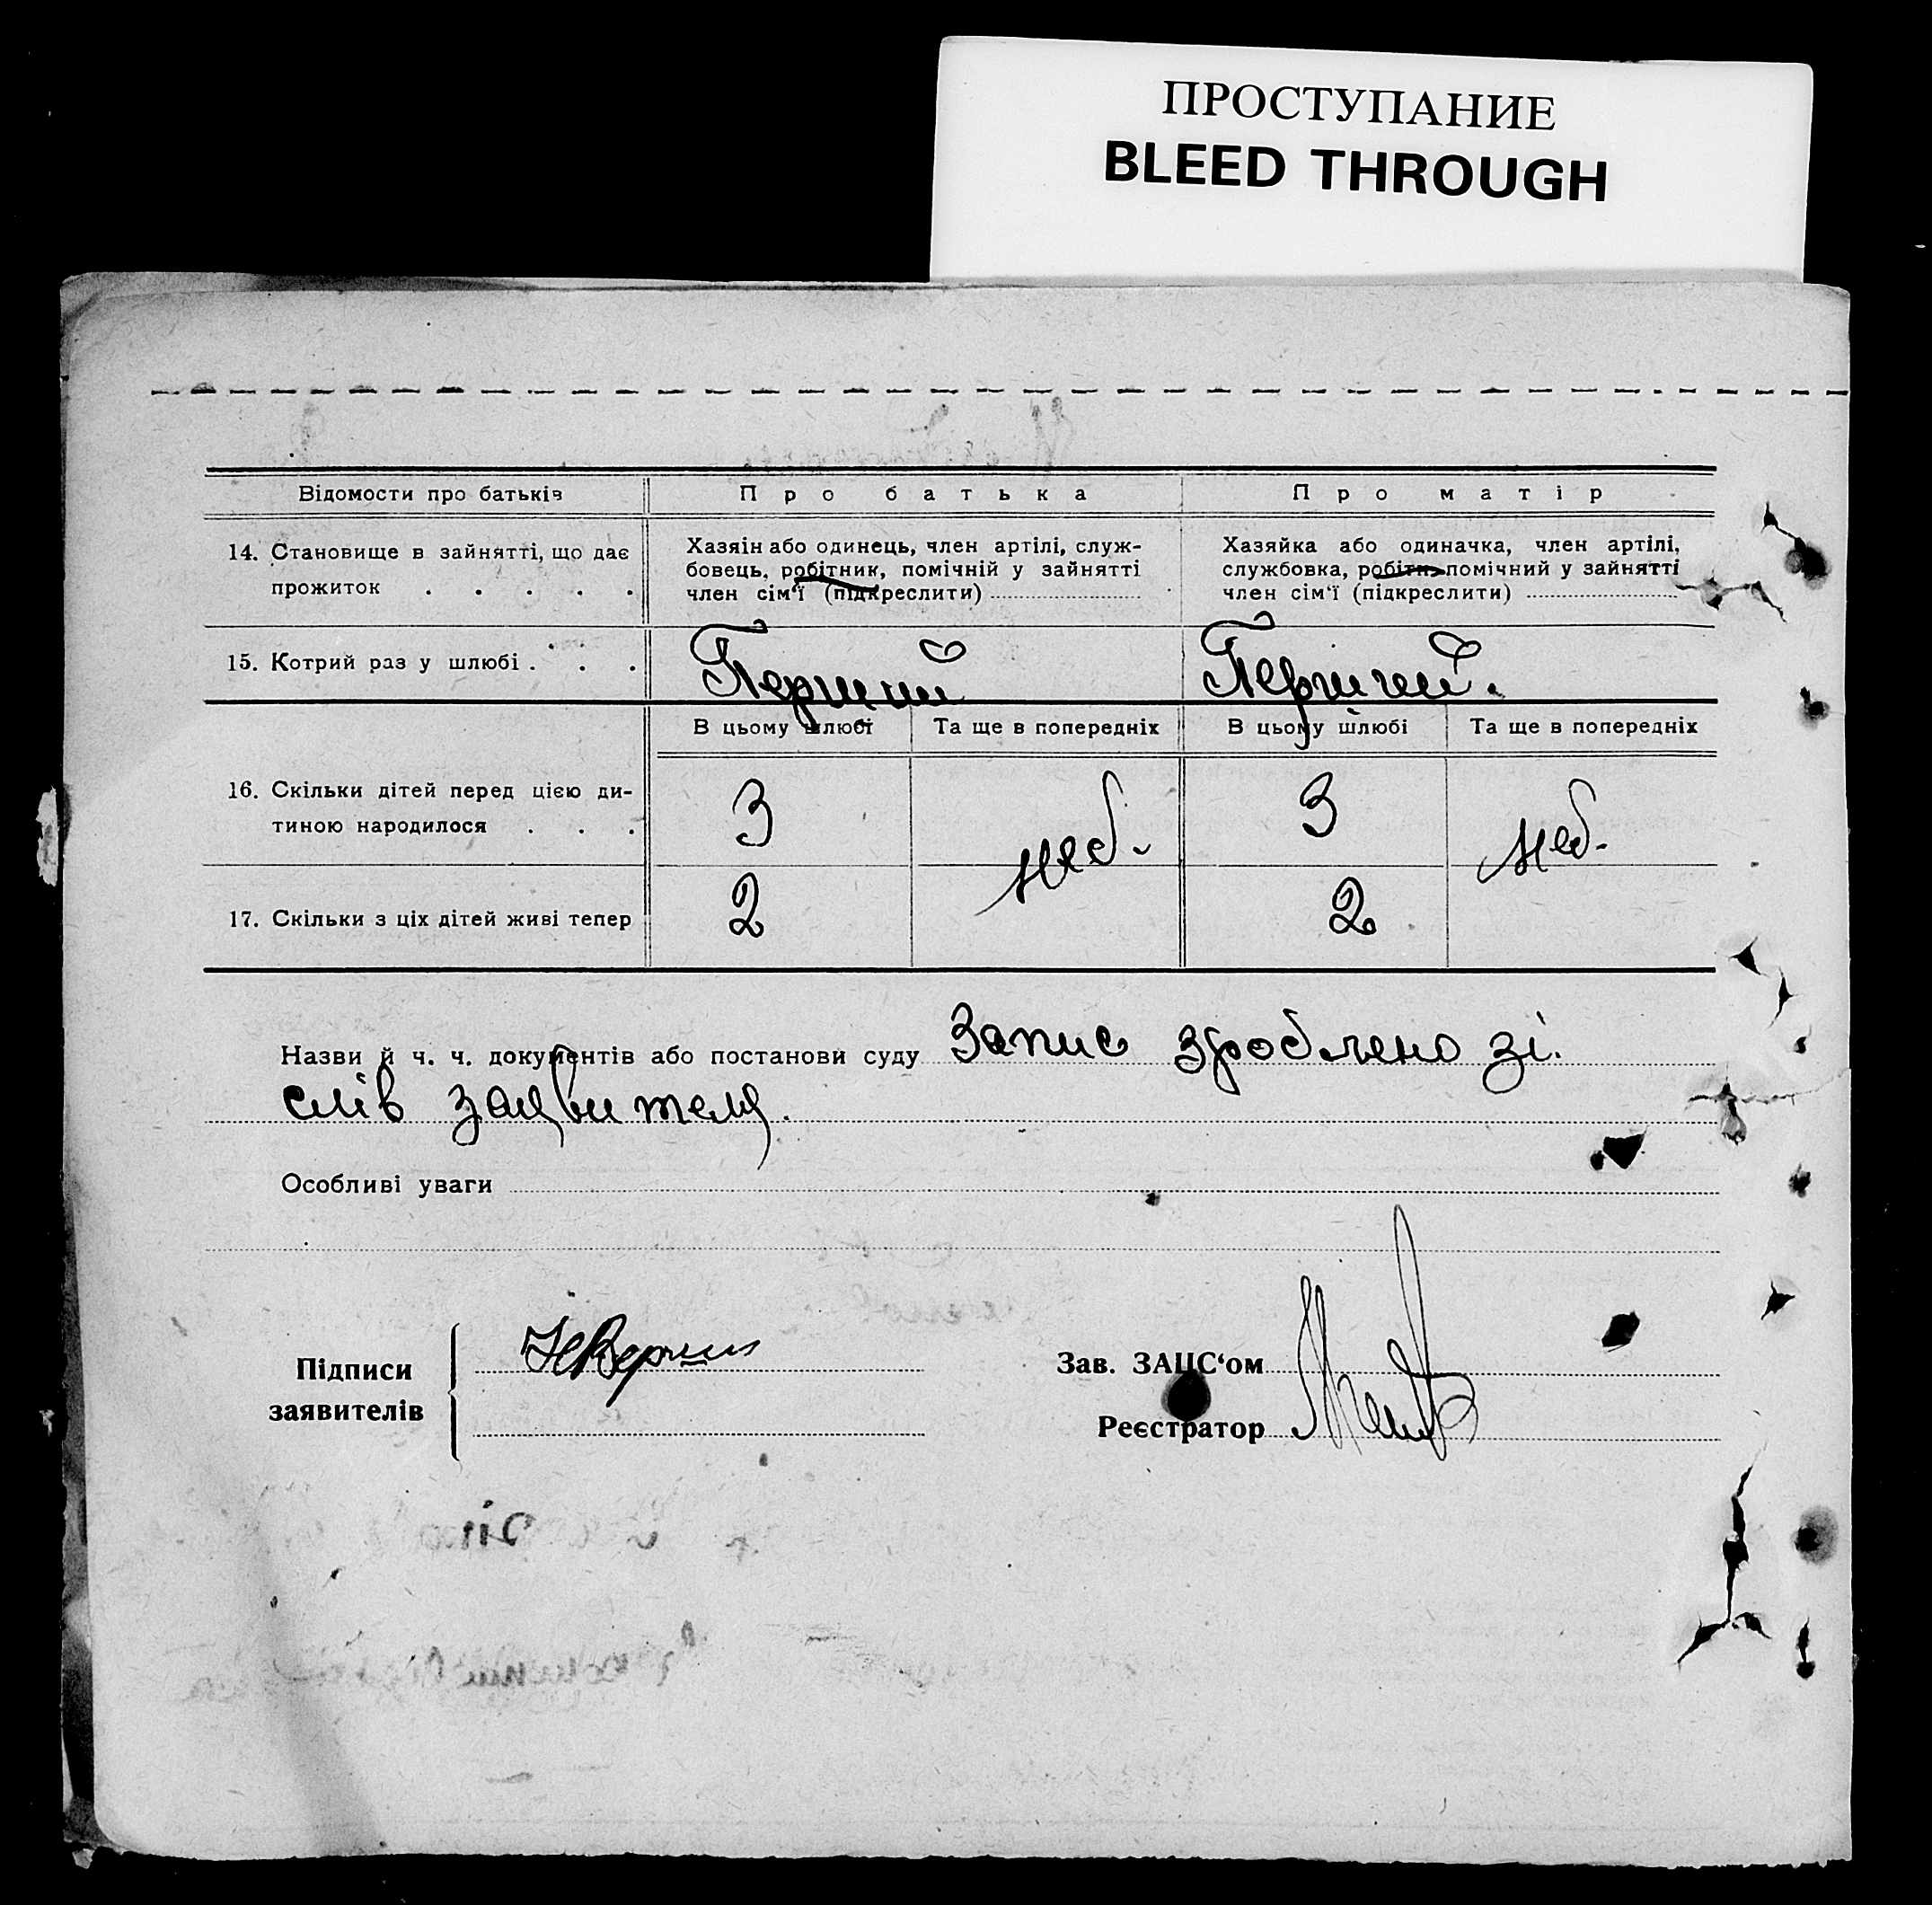 ПРОСТУПАНИЕ
BLEED THROUGH
Відомости про батьків
Про батька
Про матір
14. Становище в зайнятті, що дає
прожиток . . . . .
Хазяін або одинець, член артілі, служ-
бовець, робітник, помічній у зайнятті
член сім'ї (підкреслити)
Хазяйка або одиначка, член артілі,
службовка, робітн. помічний у зайнятті
член сім'ї (підкреслити)
15. Котрий раз у шлюбі . . .
Перший
Перший.
В цьому шлюбі
Та ще в попередніх
В цьому шлюбі
Та ще в попередніх
16. Скільки дітей перед цією ди-
тиною народилося . . .
3
неб.
3
неб.
17. Скільки з ціх дітей живі тепер
2
2
Назви й ч. ч. документів або постанови суду Запис зроблено зі
слів заявителя.
Особливі уваги
Підписи
заявителів
Зав. ЗАЦС'ом
Реєстратор